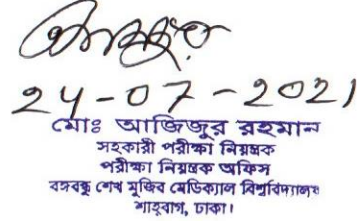 24-07-2021
মোঃ আজিজুর রহমান
সহকারী পরীক্ষা নিয়ন্ত্রক
পরীক্ষা নিয়ন্ত্রক অফিস
বঙ্গবন্ধু শেখ মুজিব মেডিক্যাল বিশ্ববিদ্যালয়
শাহবাগ, ঢাকা।